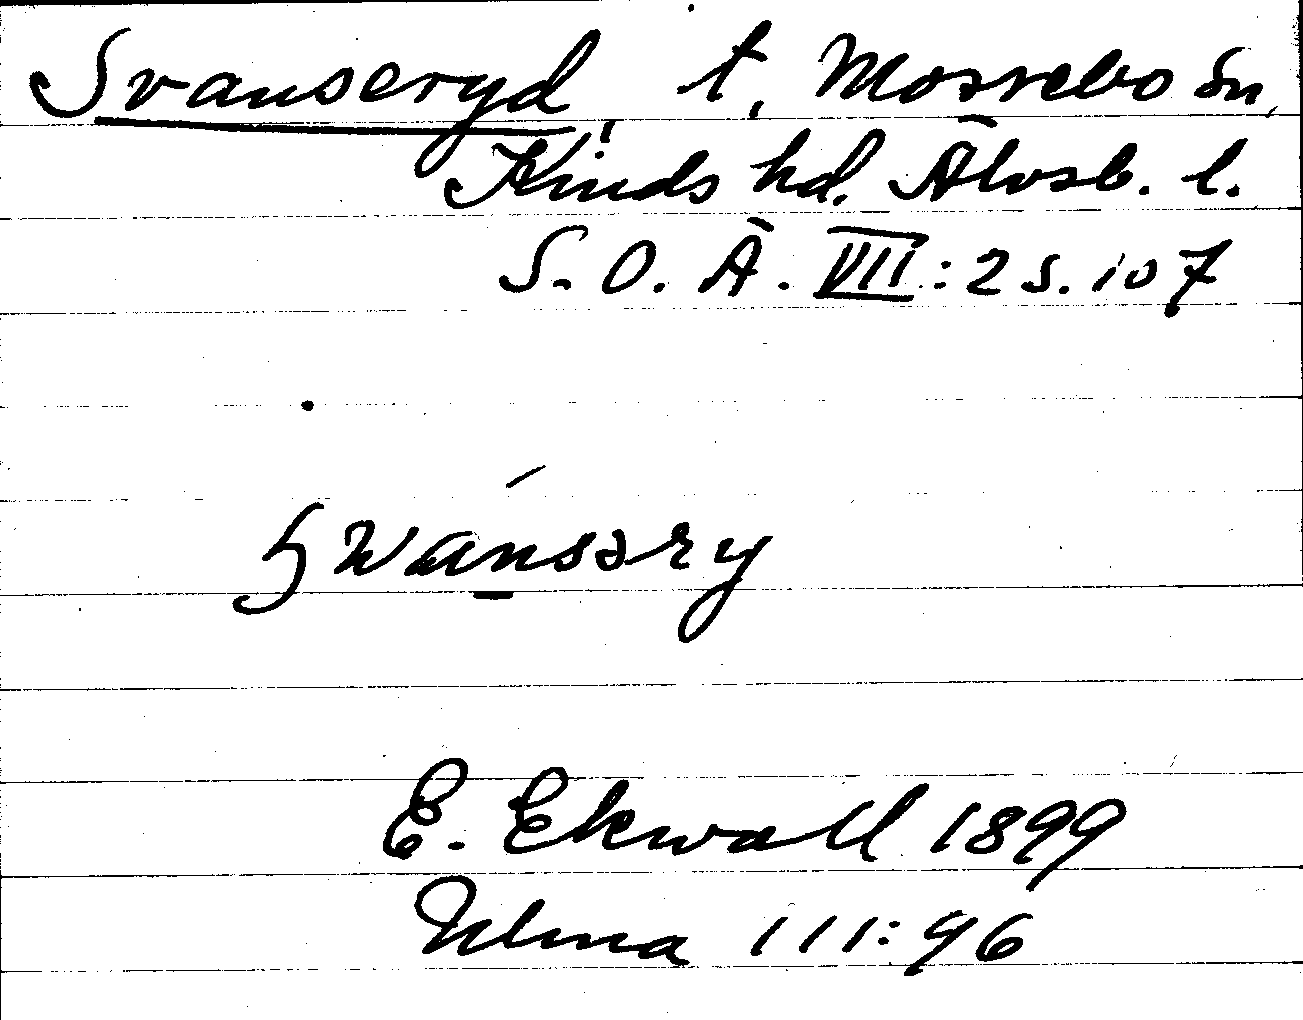 Svanseryd, t, Mossebo sn,
Kinds hd. Älvsb. l.
S. O. Ä. VII: 2 s. 107
Swánsəry
E. Ekwall 1899
Ulma 111:96